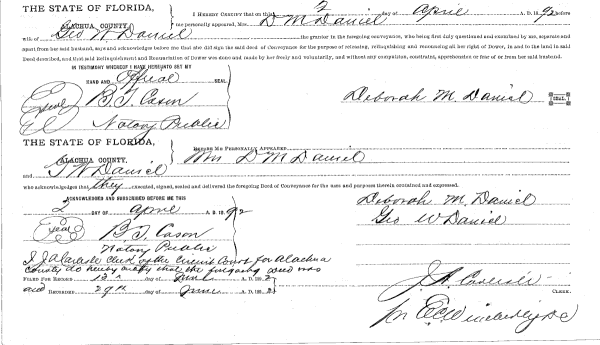 THE STATE OF FLORIDA, I HEREBY CERTIFY THAT on this 2 day of April A. D. 1892 before
ALACHUA COUNTY. me personally appeared, Mrs. D M Daniel
wife of Geo W Daniel the grantor in the foregoing conveyance, who being first duly questioned and examined by me, separate and
apart from her said husband, says and acknowledges before me that she did sign the said deed of conveyance for the purpose of releasing, relinquishing and renouncing all her right of Dower, in and to the land in said
Deed described, and that said Relinquishment and Renunciation of Dower was done and made by her freely and voluntarily, and without any compulsion, constraint, apprehension or fear of or from her said husband.
IN TESTIMONY WHEREOF I HAVE HEREUNTO SET MY
HAND AND Official SEAL
B. T. Cason
Notary Public
Deborah M. Daniel SEAL.
THE STATE OF FLORIDA, BEFORE ME PERSONALLY APPEARED
ALACHUA COUNTY. Mrs D M Daniel
and G W Daniel
who acknowledges that they executed, signed, sealed and delivered the foregoing Deed of Conveyance for the uses and purposes therein contained and expressed.
ACKNOWLEDGED AND SUBSCRIBED BEFORE ME THIS
2 DAY OF April A. D. 1892
Seal B. T. Cason
Notary Public
Deborah M. Daniel
Geo W Daniel
I J A Carlisle Clerk of the Circuit Court for Alachua
County do hereby certify that the foregoing deed was
FILED FOR RECORD 13th day of A. D. 189
and RECORDED 29th day of June A. D. 189
J. A. Carlisle
CLERK.